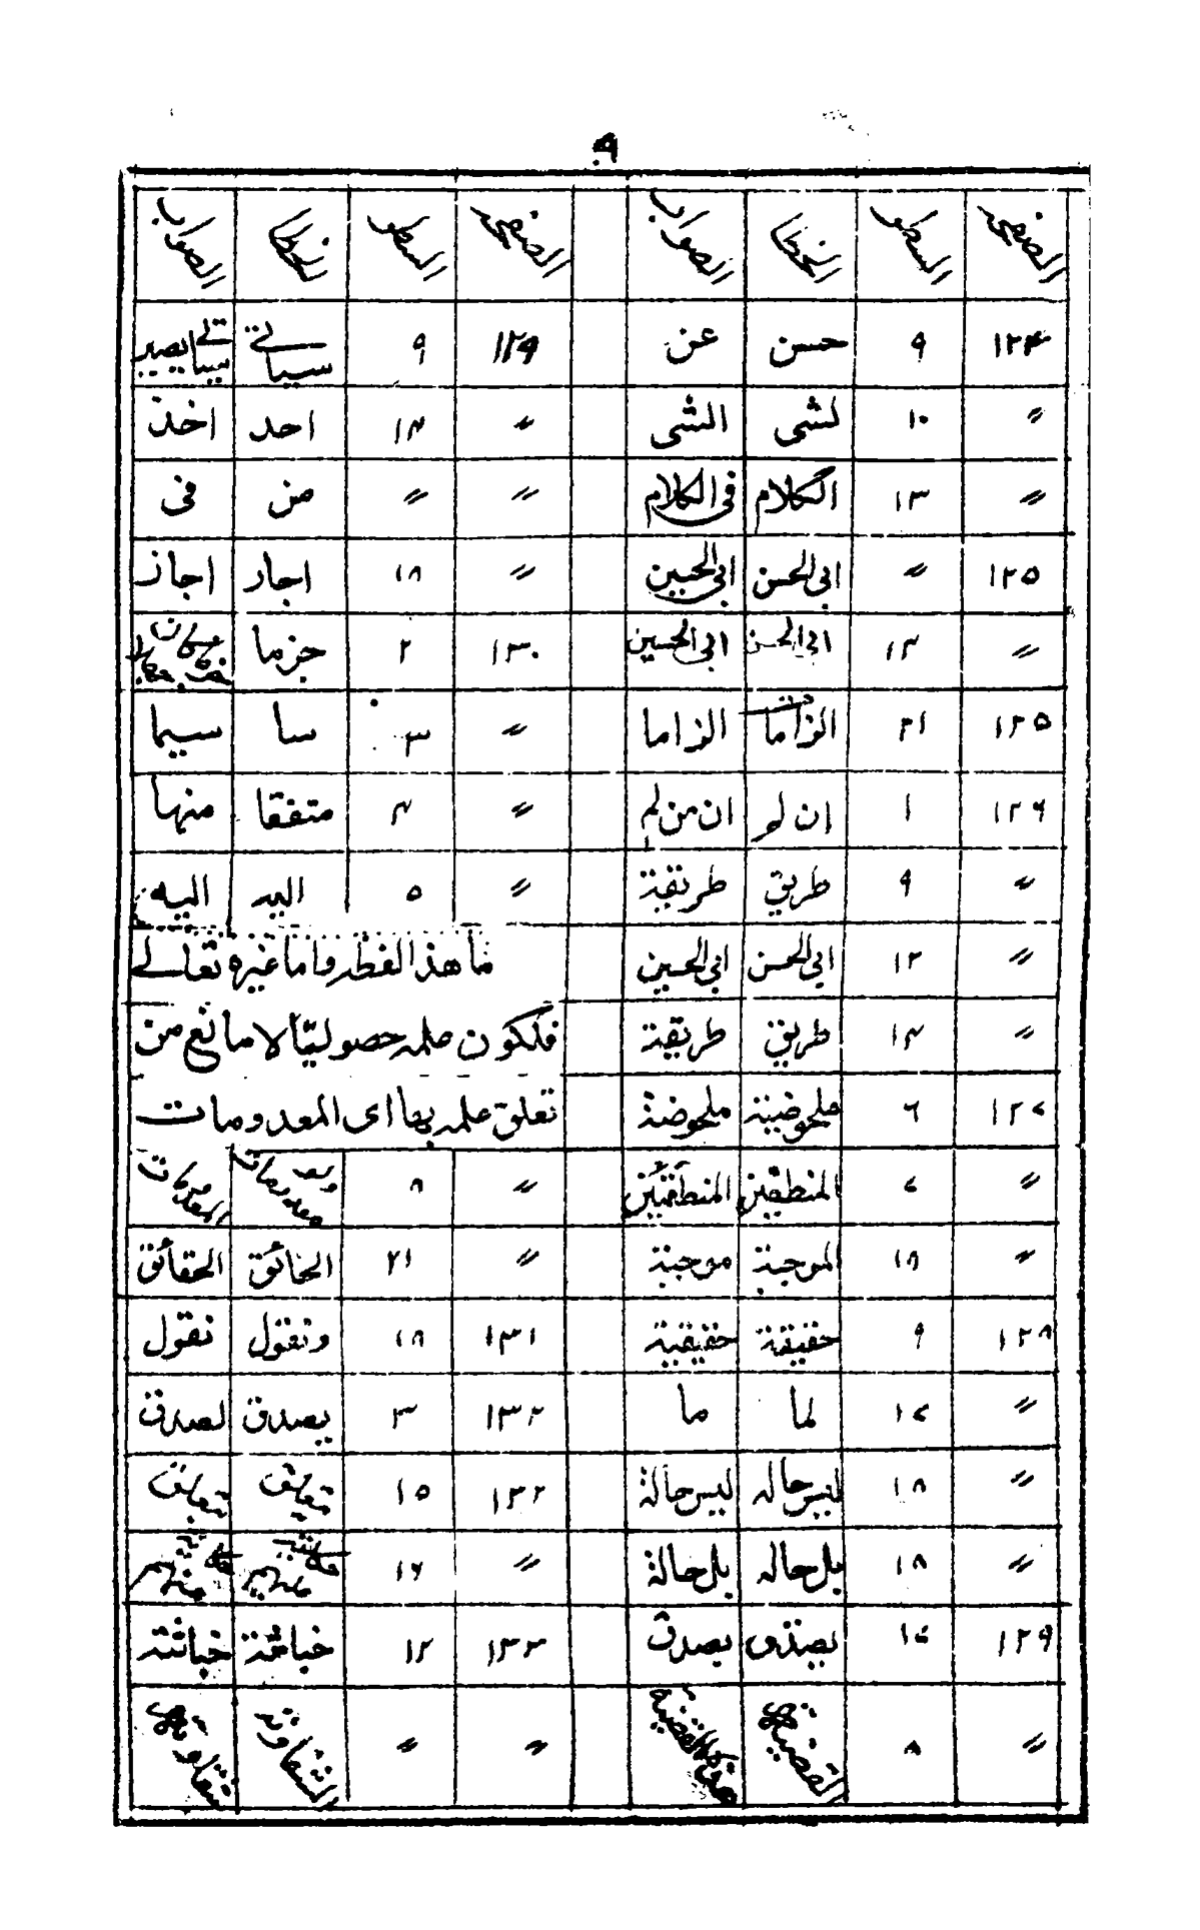 ٩
الصفحة السطور الخطا الصواب الصفحة السطور الخطا الصواب
١٢٤ ٩ حسن عن ١٢٩ ٩ سیاتی
〃 ١٠ لشی الشی 〃 ١٤ احد اخذ
〃 ١٣ الکلام فی الکلام 〃 〃 من فی
١٢٥ 〃 ابی الحسن ابی الحسین 〃 ١٨ اجار اجاز
〃 ١٤ ابی الحسن ابی الحسین ١٣٠ ٢ جزما
١٢٥ ٢١ الزاما الزاما 〃 ٣ سا سیما
١٢٦ ١ ان لم ان من لم 〃 ٤ متفقا منہا
〃 ٩ طریق طریقة 〃 ٥ الید الیه
〃 ١٢ ابی الحسن ابی الحسین ما هذا الفظر واما غیره تعالے
〃 ١٤ طریق طریقة فلکون علمه حصولیّا لا مانع من
١٢٧ ٦ ملحوضیة ملحوضة تعلق علمه بها ای المعدومات
〃 ٧ المنطقین المنطقیّین 〃 ٨ معدومات المعدومات
〃 ١٨ الموجبة موجبة 〃 ٢١ الخائق الحقائق
١٢٨ ٩ حقیقة حقیقیة ١٣١ ١٨ ونقول نقول
〃 ١٧ لما ما ١٣٢ ٣ یصدق لصدق
〃 ١٨ لیس حاله لیس حالة ١٣٢ ١٥ یتعلق تعلق
〃 ١٨ بل حاله بل حالة 〃 ١٦
١٢٩ ١٧ یصدی یصدق ١٣٣ ١٢ خباثة خباثته
〃 ٨ القضیة القضیة 〃 〃 الشقاوة شقاوته